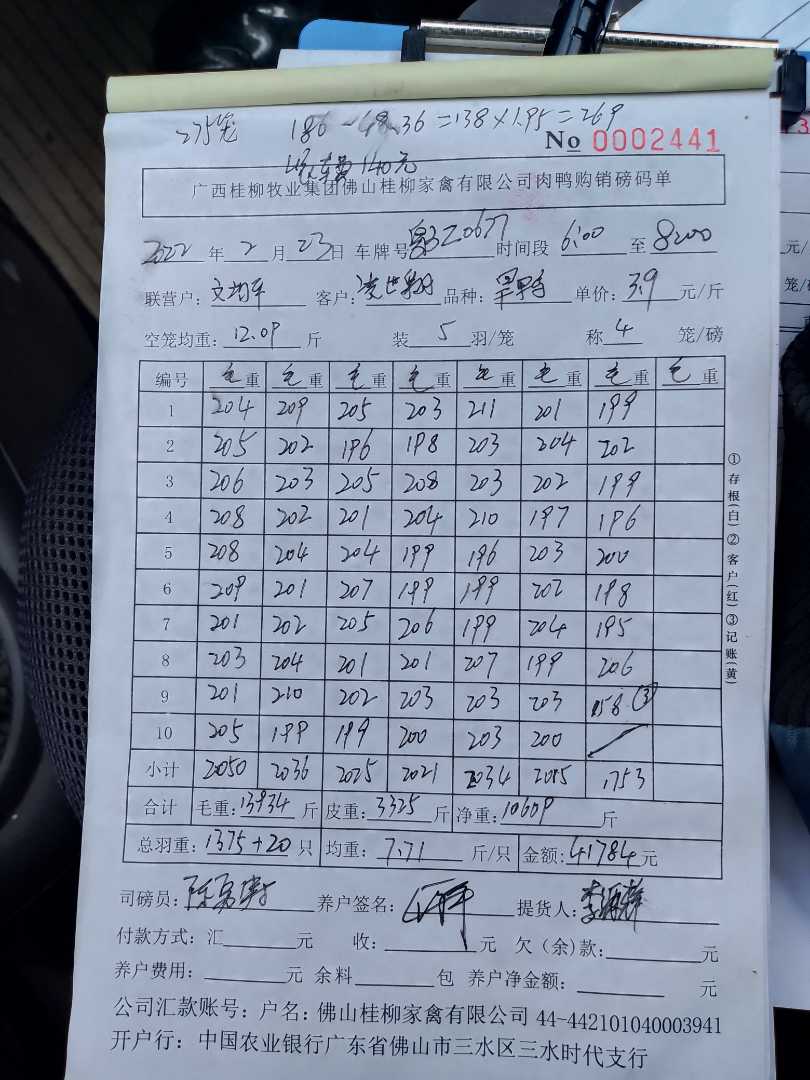 275笼 186-48.36=138×1.95=269
No 0002441
收车费140元
广西桂柳牧业集团佛山桂柳家禽有限公司肉鸭购销磅码单
2022年2月23日 车牌号 时间段 6:00 至 8:00
联营户: 客户: 品种: 单价: 3.9 元/斤
空笼均重: 12.09 斤 装 5 羽/笼 称 4 笼/磅
编号 毛重 毛重 毛重 毛重 毛重 毛重 毛重 毛重
1 204 209 205 203 211 201 199
2 205 202 196 198 203 204 202
3 206 203 205 208 203 202 199
4 208 202 201 204 210 197 196
5 208 204 204 199 196 203 200
6 209 201 207 199 199 202 198
7 201 202 205 206 199 204 195
8 203 204 201 201 207 199 206
9 201 210 202 203 203 203 158(3)
10 205 199 199 200 203 200
小计 2050 2036 2025 2021 2034 2015 1753
合计 毛重: 13934 斤 皮重: 3325 斤 净重: 10609 斤
总羽重: 1375+20 只 均重: 7.71 斤/只 金额: 41784 元
司磅员: 养户签名: 提货人:
付款方式: 汇 元 收: 元 欠(余)款: 元
养户费用: 元 余料 包 养户净金额: 元
公司汇款账号: 户名: 佛山桂柳家禽有限公司 44-442101040003941
开户行: 中国农业银行广东省佛山市三水区三水时代支行
①存根(白)②客户(红)③记账(黄)
元/
笼/